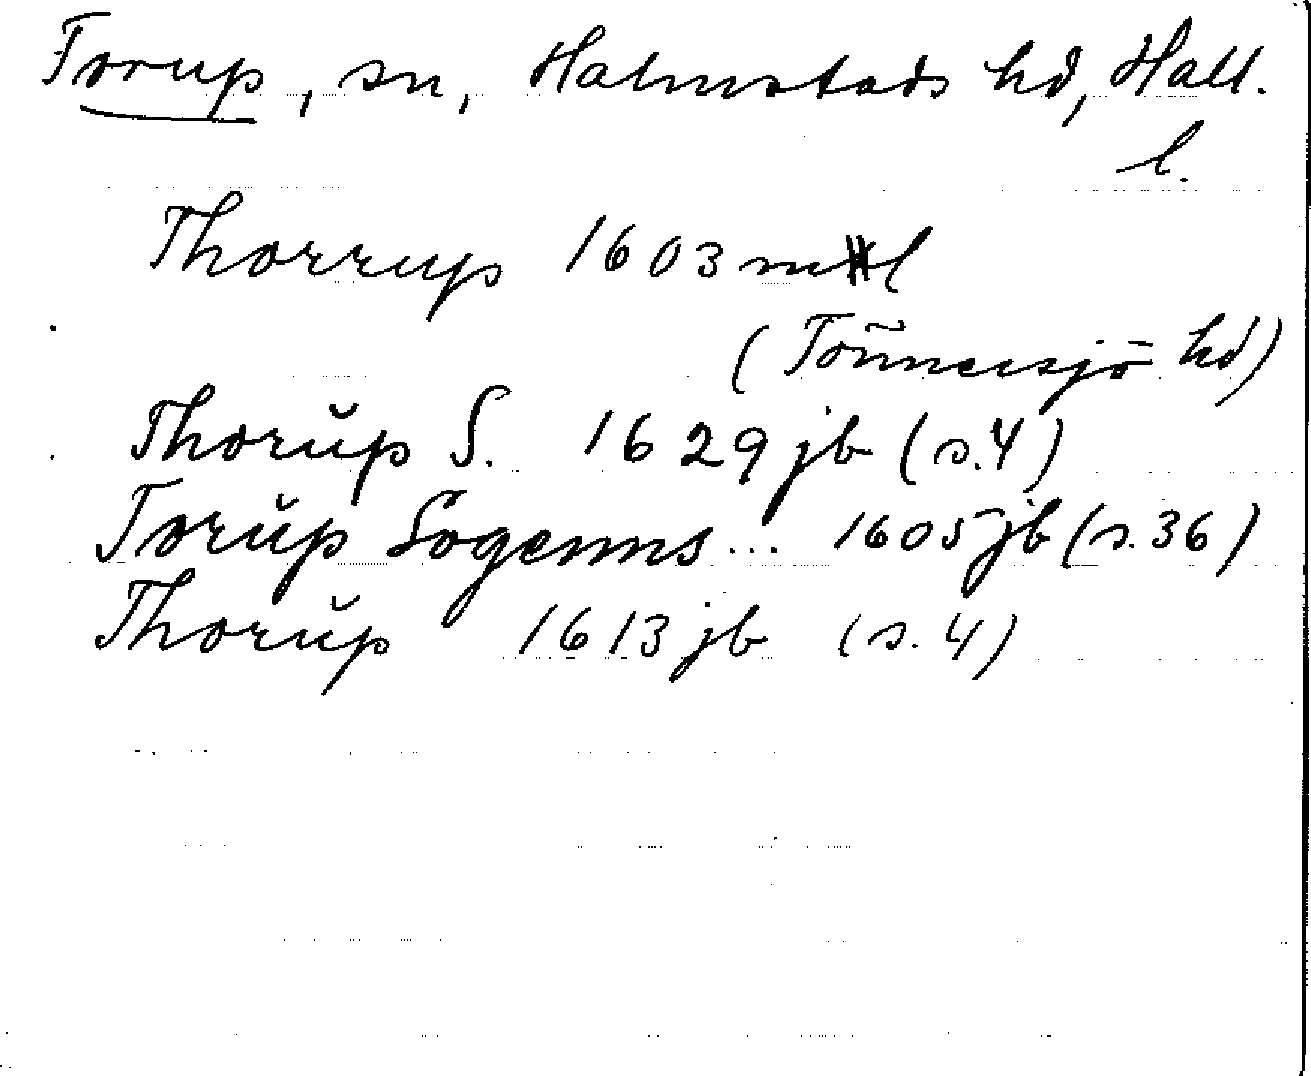 Torup, sn, Halmstads hd, Hall.
l.
Thorrup 1603 ml
(Tönnersjö hd)
Thorŭp S. 1629 jb (s.4)
Torŭp Sogenns... 1605 jb (s.36)
Thorŭp 1613 jb (s.4)